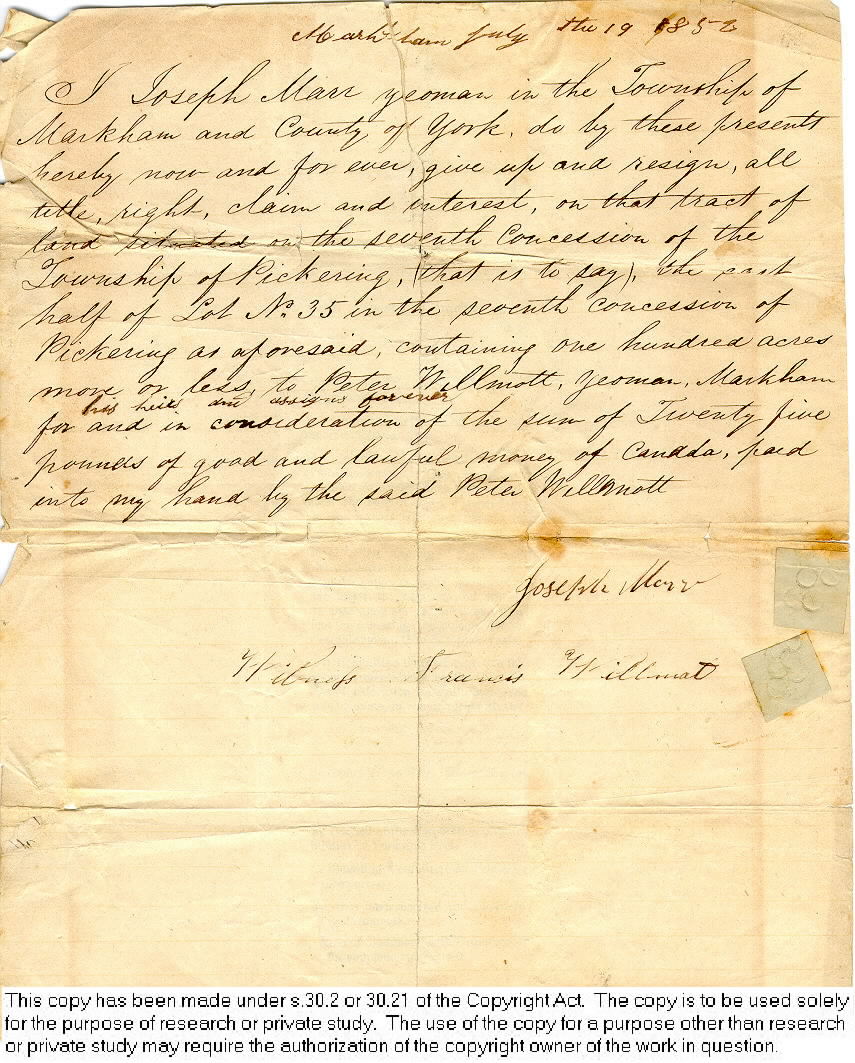 Markham July the 19 1852
I Joseph Marr yeoman in the Township of
Markham and County of York, do by these presents
hereby now and for ever, give up and resign, all
title, right, claim and interest, on that tract of
land situated on the seventh Concession of the
Township of Pickering, (that is to say), the east
half of Lot No. 35 in the seventh concession of
Pickering as aforesaid, containing one hundred acres
more or less, to Peter Willmott, Yeoman, Markham
his heirs and assigns forever
for and in consideration of the sum of Twenty five
pounds of good and lawful money of Canada, paid
into my hand by the said Peter Willmott
Joseph Marr
Witness Francis Willmot
This copy has been made under s.30.2 or 30.21 of the Copyright Act. The copy is to be used solely
for the purpose of research or private study. The use of the copy for a purpose other than research
or private study may require the authorization of the copyright owner of the work in question.